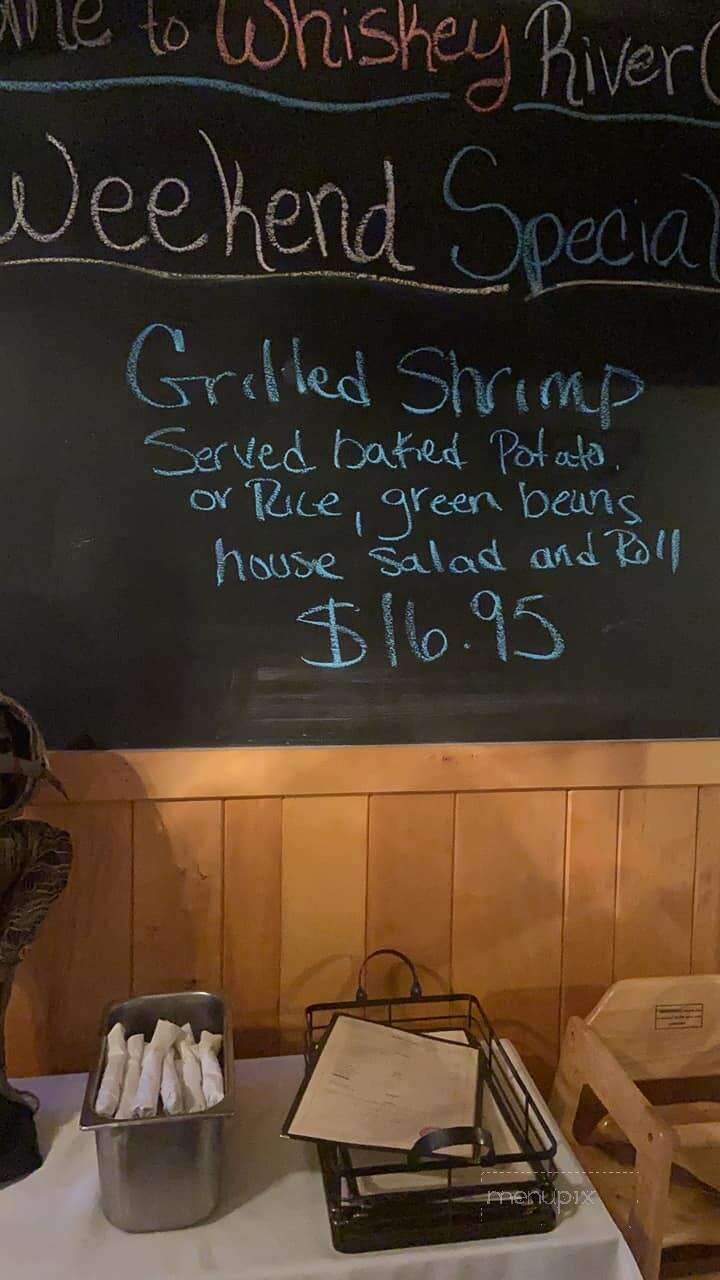 to Whiskey River
Weekend Special
Grilled Shrimp
Served baked Potato.
or Rice, green beans
house salad and Roll
$16.95
menupix